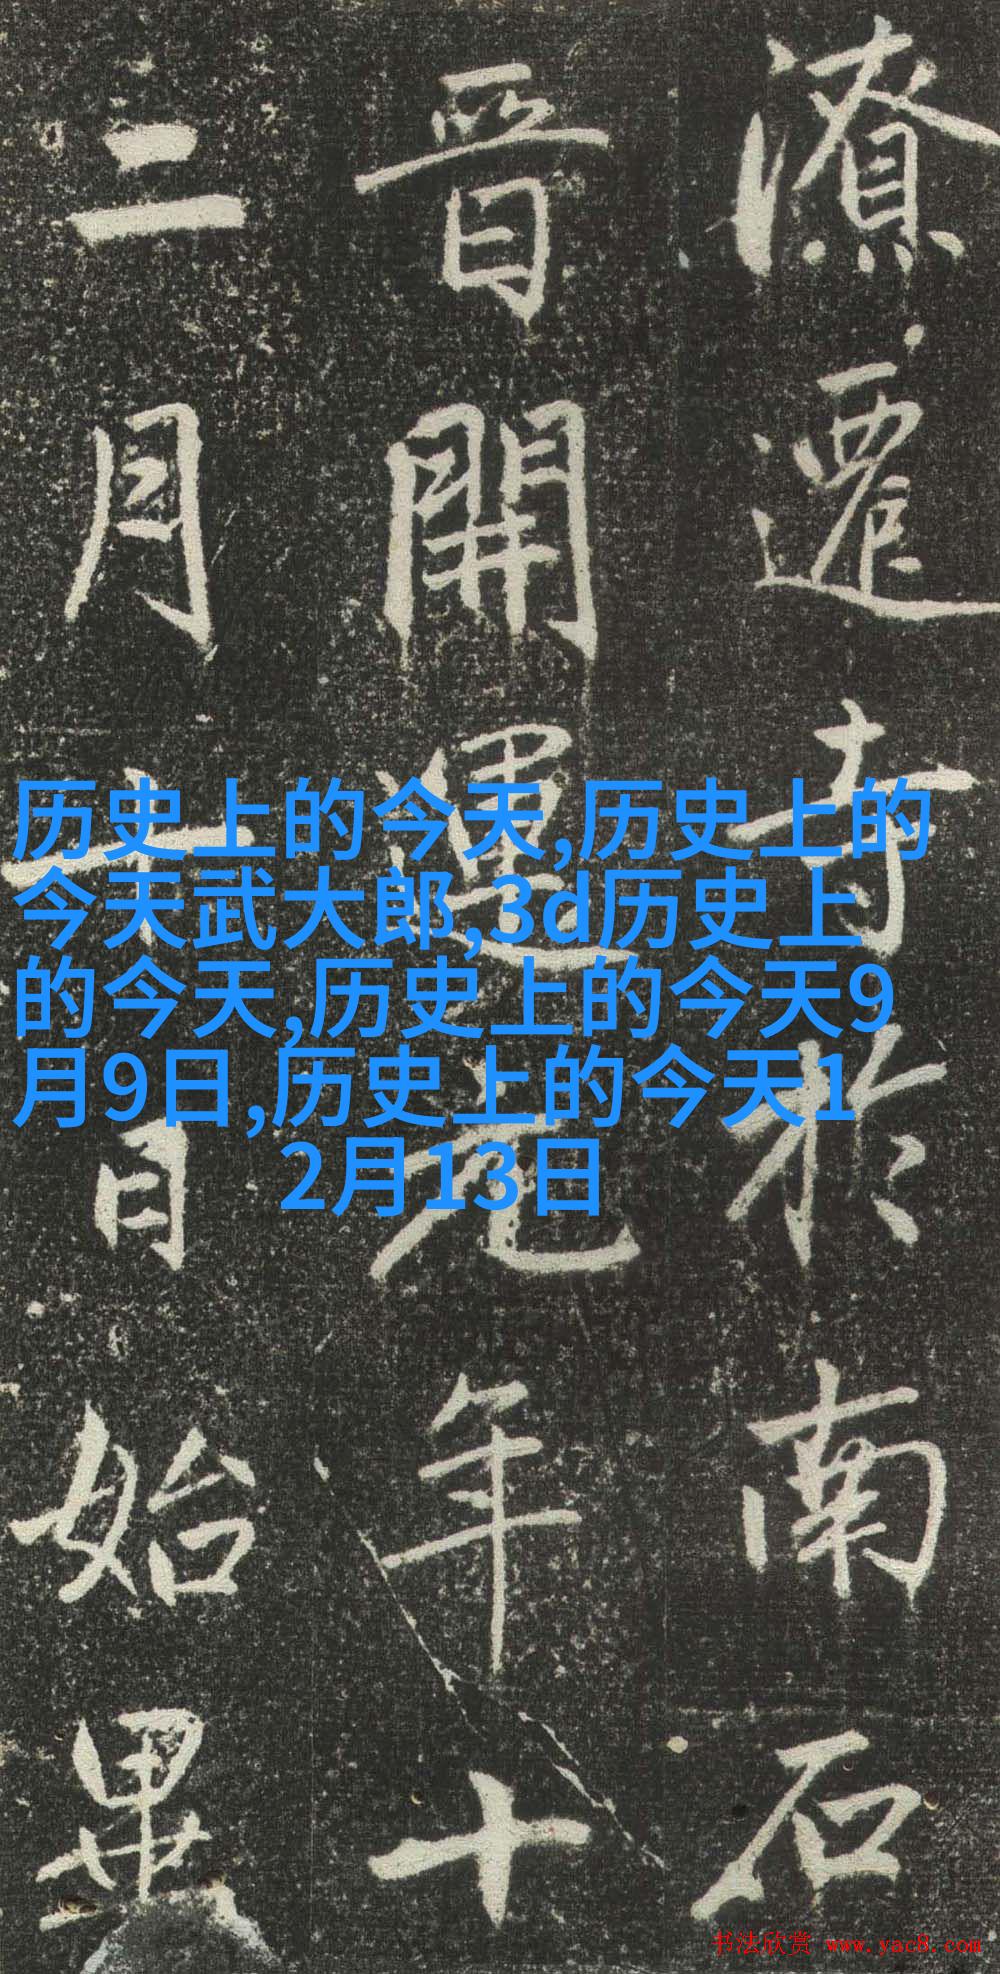 潦遷寺於南石
晋開運元年十
二月十日始異
历史上的今天,历史上的
今天武大郎,3d历史上
的今天,历史上的今天9
月9日,历史上的今天1
2月13日
书法欣赏 www.yac8.com